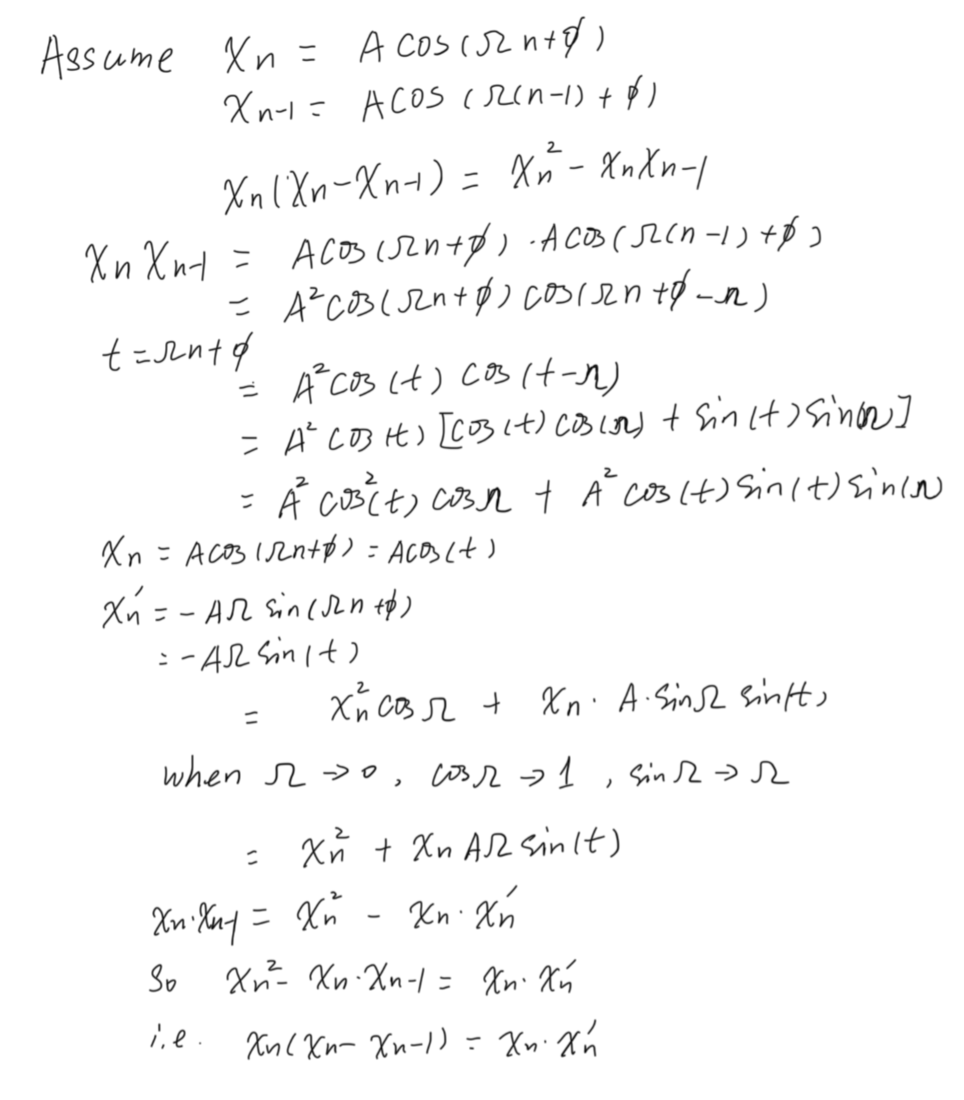 Assume Xn = A cos(Ωn+ϕ)
Xn-1 = A cos (Ω(n-1) + ϕ)
Xn(Xn-Xn-1) = Xn² - XnXn-1
XnXn-1 = A cos(Ωn+ϕ)·A cos(Ω(n-1)+ϕ)
= A²cos(Ωn+ϕ) cos(Ωn+ϕ-Ω)
t=Ωn+ϕ
= A²cos(t) cos(t-Ω)
= A² cos(t) [cos(t) cos(Ω) + sin(t) sin(Ω)]
= A² cos²(t) cosΩ + A² cos(t) sin(t) sin(Ω)
Xn = A cos(Ωn+ϕ) = A cos(t)
Xn′ = - AΩ sin(Ωn+ϕ)
= -AΩ sin(t)
= Xn² cosΩ + Xn· A·sinΩ sin(t)
when Ω → 0, cosΩ → 1, sinΩ → Ω
= Xn² + Xn AΩ sin(t)
Xn·Xn-1 = Xn² - Xn·Xn′
So Xn² - Xn·Xn-1 = Xn·Xn′
i.e. Xn(Xn- Xn-1) = Xn·Xn′